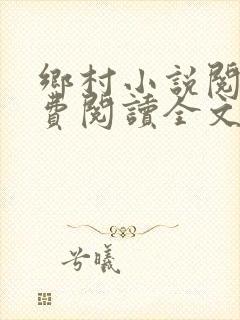 鄉村小說閱
費閱讀全文
兮曦